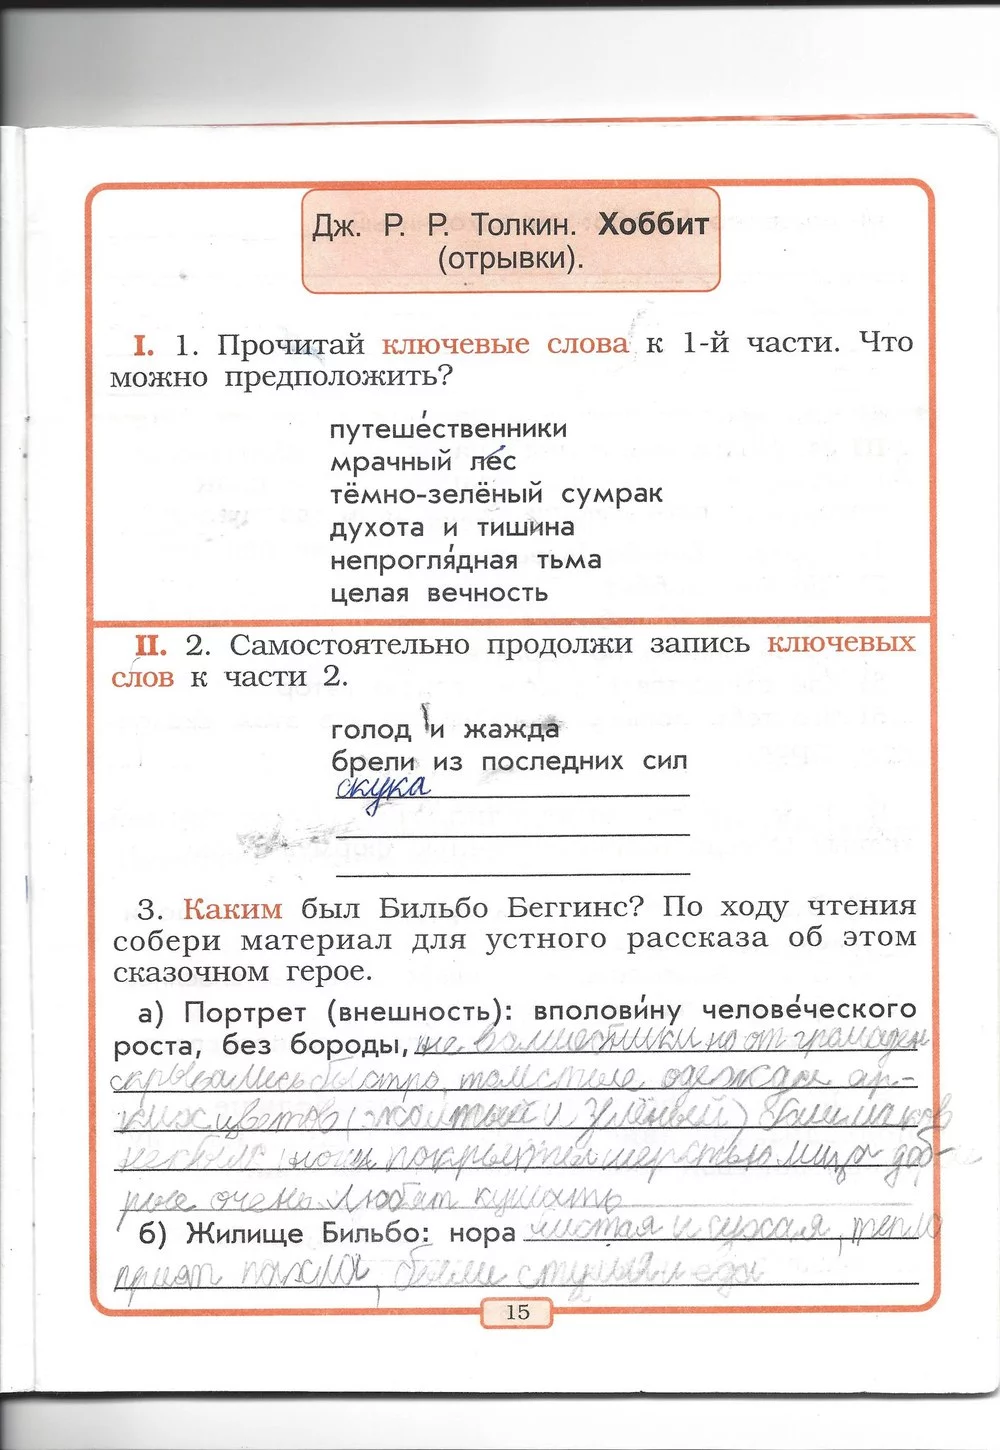 Дж. Р. Р. Толкин. Хоббит
(отрывки).
I. 1. Прочитай ключевые слова к 1-й части. Что
можно предположить?
путеше́ственники
мрачный лес
тёмно-зелёный сумрак
духота и тишина
непрогля́дная тьма
целая вечность
II. 2. Самостоятельно продолжи запись ключевых
слов к части 2.
голод и жажда
брели из последних сил
скука
3. Каким был Бильбо Беггинс? По ходу чтения
собери материал для устного рассказа об этом
сказочном герое.
а) Портрет (внешность): вполови́ну челове́ческого
роста, без бороды, не волшебники но от
скрывались быстро толстые одежда яр-
ких цветов (жолтый и зелёный)
ноги покрыты шерстью лица доб-
рые очень любят кушать
б) Жилище Бильбо: нора чистая и сухая, тепло
были стулья и еда
15